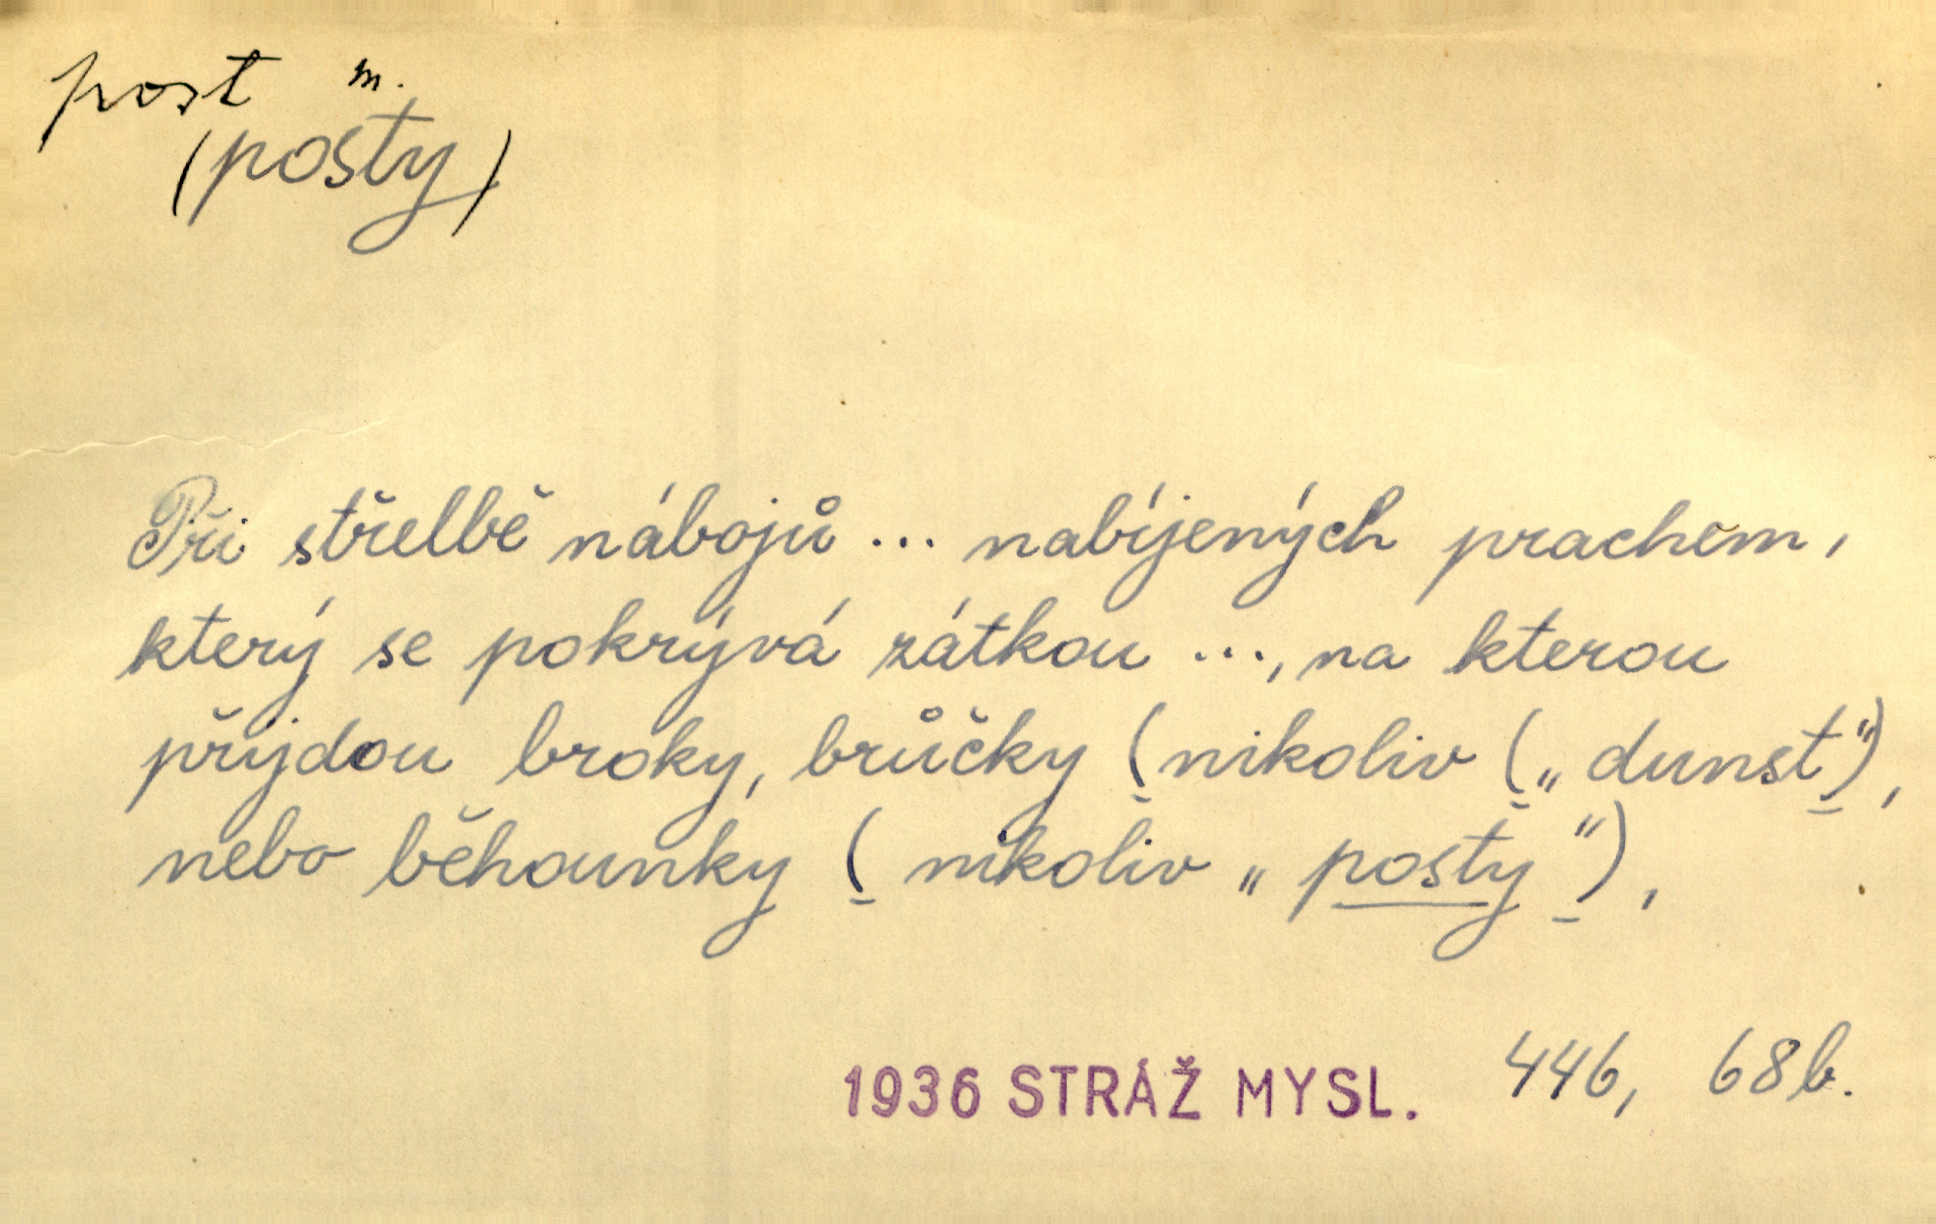 post m.
(posty)
Při střelbě nábojů ... nabíjených prachem,
který se pokrývá zátkou ..., na kterou
přijdou broky, brůčky (nikoliv („dunst"),
nebo běhounky (nikoliv „posty"),
1936 STRÁŽ MYSL. 446, 68b.